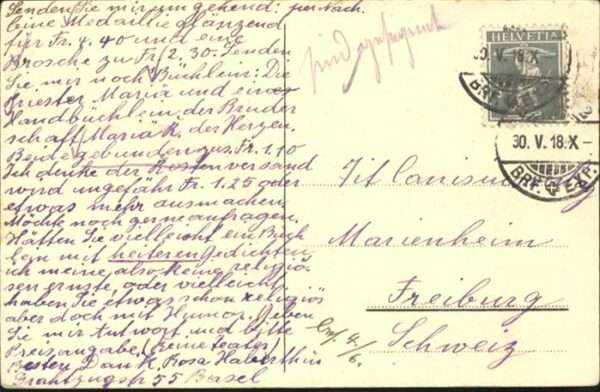 Senden Sie mir umgehend: per Nach.
Eine Medaillie glänzend
für Fr. 4.40 und eine
Brosche zu Fr. 2.30. Senden
Sie mir noch Büchlein: Die
Priester Mariä und eine
Handbüchlein der Bruder
schaft Mariä K. des Herzen.
Beide gebunden zus. Fr. 1.10
Ich denke der Kosten versand
wird ungefähr Fr. 1.25 oder
etwas mehr ausmachen.
Möchte noch gerne anfragen.
Hätten Sie vielleicht ein Büch
lein mit heiteren Gedichten,
ich meine, also keine religiö-
sen ernste, oder vielleicht
haben Sie etwas schon religiös
aber doch mit Humor. Geben
Sie mir Antwort und bitte
Preisangabe, (keine teater)
Besten Dank, Rosa
55 Basel
HELVETIA
30. V. 18. X
BRF. EXP.
30. V. 18. X–
BRF. EXP.
Tit
Marienheim
Freiburg
Schweiz
4./6.